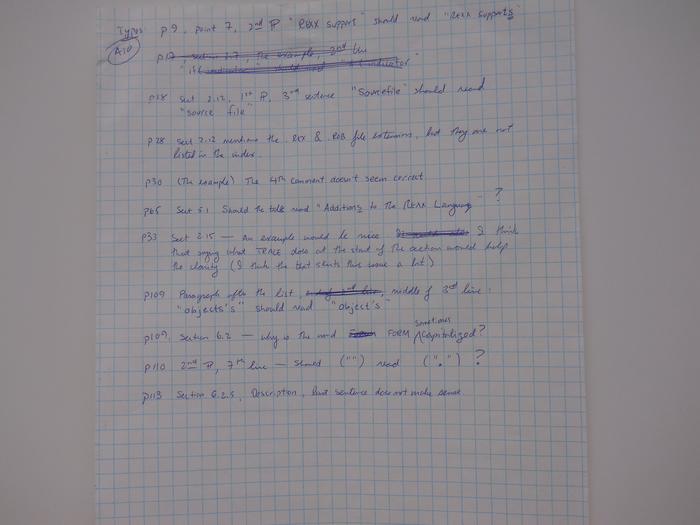 Typos: p9, point 7, 2nd P "REXX support" should read "REXX supports"
A10
p17, section 2.7, the example, 2nd line
"if indicator" should read "indicator"
p28 Sect 2.12, 1st P, 3rd sentence "Sourcefile" should read
"source file"
p28 Sect 2.12 mentions the REX & ROB file extensions, but they are not
listed in the index.
p30 (The example) The 4th comment doesn't seem correct
p65 Sect 5.1 Should the title read "Additions to the REXX Language" ?
p33 Sect 2.15 — An example would be nice I think
that saying what TRACE does at the start of the section would help
the clarity (I think the text skirts this issue a bit)
p109 Paragraph after the list, middle of 3rd line:
"objects's" should read "object's"
p109, Section 6.2 — why is the word FORM sometimes capitalized?
p110 2nd P, 7th line — Should ("") read (".") ?
p113 Section 6.2.5, Description, last sentence does not make sense